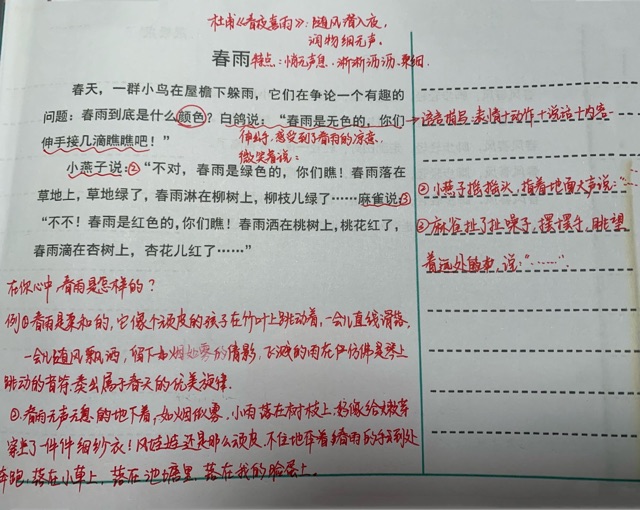 杜甫《春夜喜雨》:随风潜入夜,
润物细无声。
春雨 特点:悄无声息、淅淅沥沥、柔细.
春天,一群小鸟在屋檐下躲雨,它们在争论一个有趣的
问题:春雨到底是什么颜色?白鸽说:“春雨是无色的,你们
伸手接几滴瞧瞧吧!”
伸出手,感受到了春雨的凉意.
微笑着说:
小燕子说:②“不对,春雨是绿色的,你们瞧!春雨落在
草地上,草地绿了,春雨淋在柳树上,柳枝儿绿了……麻雀说:③
“不不!春雨是红色的,你们瞧!春雨洒在桃树上,桃花红了,
春雨滴在杏树上,杏花儿红了……”
语言描写:表情+动作+说话+内容
②小燕子摇摇头,指着地面大声说:“…
③麻雀扭了扭嗓子,摆摆手,眺望
着远处的,说:“……”.
在你心中,春雨是怎样的?
例①春雨是柔和的,它像个顽皮的孩子在竹叶上跳动着,一会儿直线滑落,
一会儿随风飘洒,留下如烟如雾的倩影,飞溅的雨花仿佛是琴上
跳动的音符,奏出属于春天的优美旋律.
②.春雨无声无息的地下着,如烟似雾.小雨落在树枝上,好像给
穿上了一件件细纱衣!风娃娃还是那么顽皮,不住地牵着春雨的手到处
奔跑.落在小草上,落在池塘里,落在我的脸蛋上.